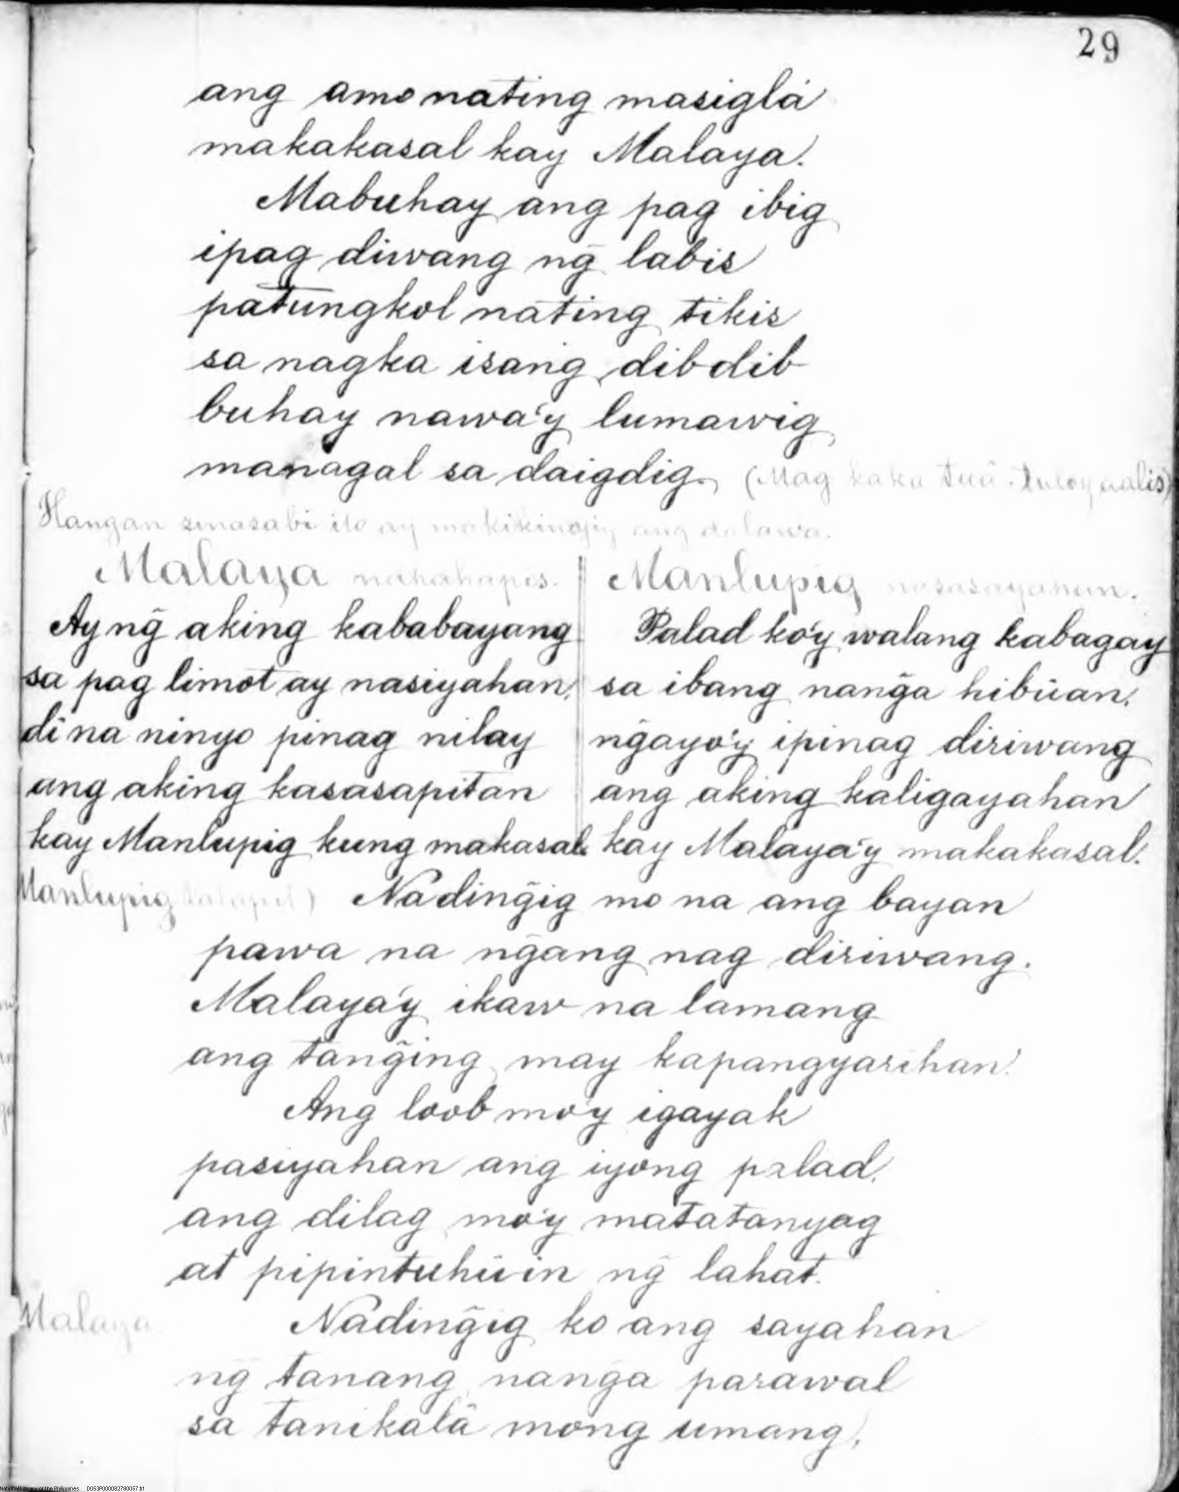 29
ang amo nating masiglá
makakasal kay Malaya.
Mabuhay ang pag ibig
ipag diwang ng̃ labis
patungkol nating tikis
sa nagka isang dibdib
buhay nawa'y lumawig
managal sa daigdig. (Mag kaka tuâ. tuloy aalis)
Hangan sinasabi ito ay makikinig ang dalawa.
Malaya nahahapis.
Ay ng̃ aking kababayang
sa pag limot ay nasiyahan,
di na ninyo pinag nilay
ang aking kasasapitan
kay Manlupig kung makasal.
Manlupig nasasayahan.
Palad ko'y walang kabagay
sa ibang nang̃a hibúan,
ng̃ayo'y ipinag diriwang
ang aking kaligayahan
kay Malaya'y makakasal.
Manlupig Nading̃ig mo na ang bayan
pawa na ng̃ang nag diriwang.
Malaya'y ikaw na lamang
ang tang̃ing may kapangyarihan.
Ang loob mo'y igayak
pasiyahan ang iyong palad,
ang dilag mo'y matatanyag
at pipintuhúin ng̃ lahat.
Malaya Nading̃ig ko ang sayahan
ng̃ tanang nang̃a parawal
sa tanikalâ mong umang,
National Library of the Philippines